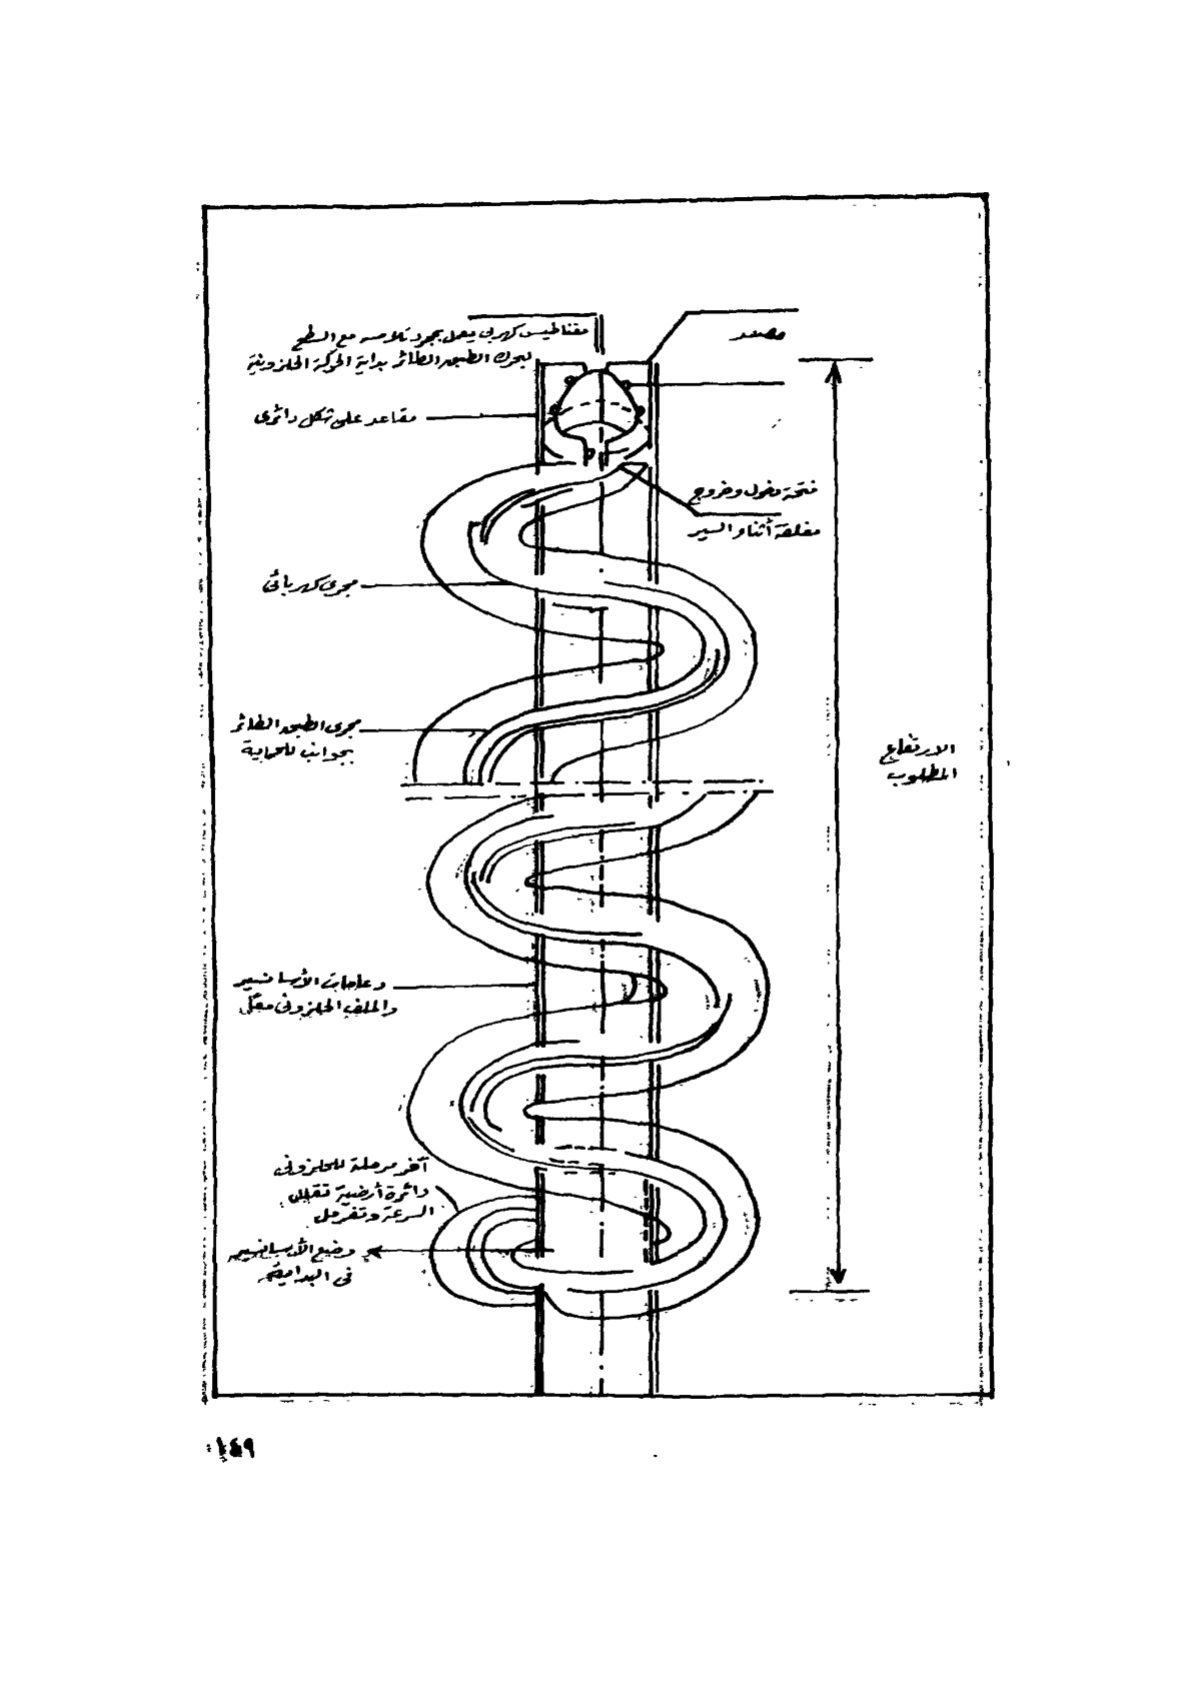 مغناطيس كهربى يعمل بمجرد تلامسه مع السطح
ليحرك الطبق الطائر بداية الحركة الحلزونية
مصعد
مقاعد على شكل دائرى
فتحة دخول وخروج
مغلقة أثناء السير
مجرى كهربائى
مجرى الطبق الطائر
بجوانب للحماية
الارتفاع
المطلوب
دعامات الأسانسير
والملف الحلزونى
آخر مرحلة للحلزونى
دائرة أرضية تقلل
السرعة وتفرمل
وضع الأسانسير
فى البداية
١٤٩